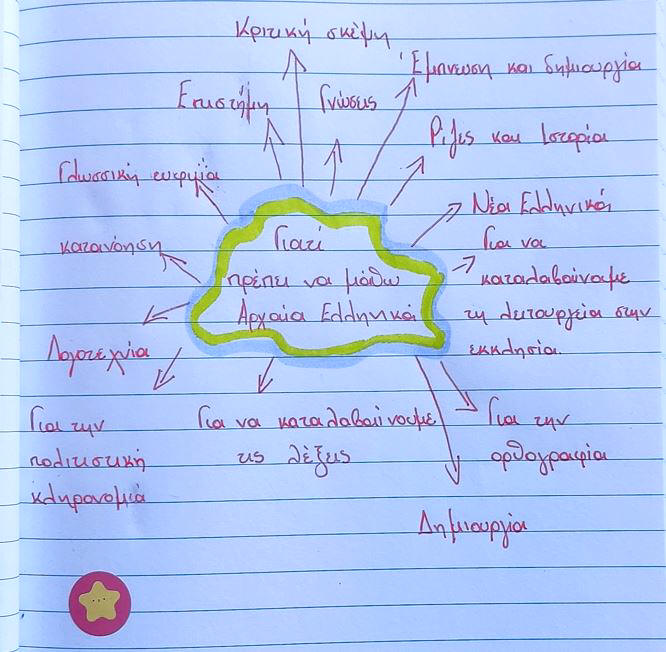 Κριτική σκέψη
Έμπνευση και δημιουργία
Επιστήμη
Γνώσεις
Ρίζες και Ιστορία
Γλωσσική ευεργία
Νέα Ελληνικά
κατανόηση
Γιατί
πρέπει να μάθω
Αρχαία Ελληνικά
Για να
καταλαβαίνουμε
τη λειτουργεία στην
εκκλησία.
Λογοτεχνία
Για την
πολιτιστική
κληρονομιά
Για να καταλαβαίνουμε
τις λέξεις
Για την
ορθογραφία
Δημιουργία